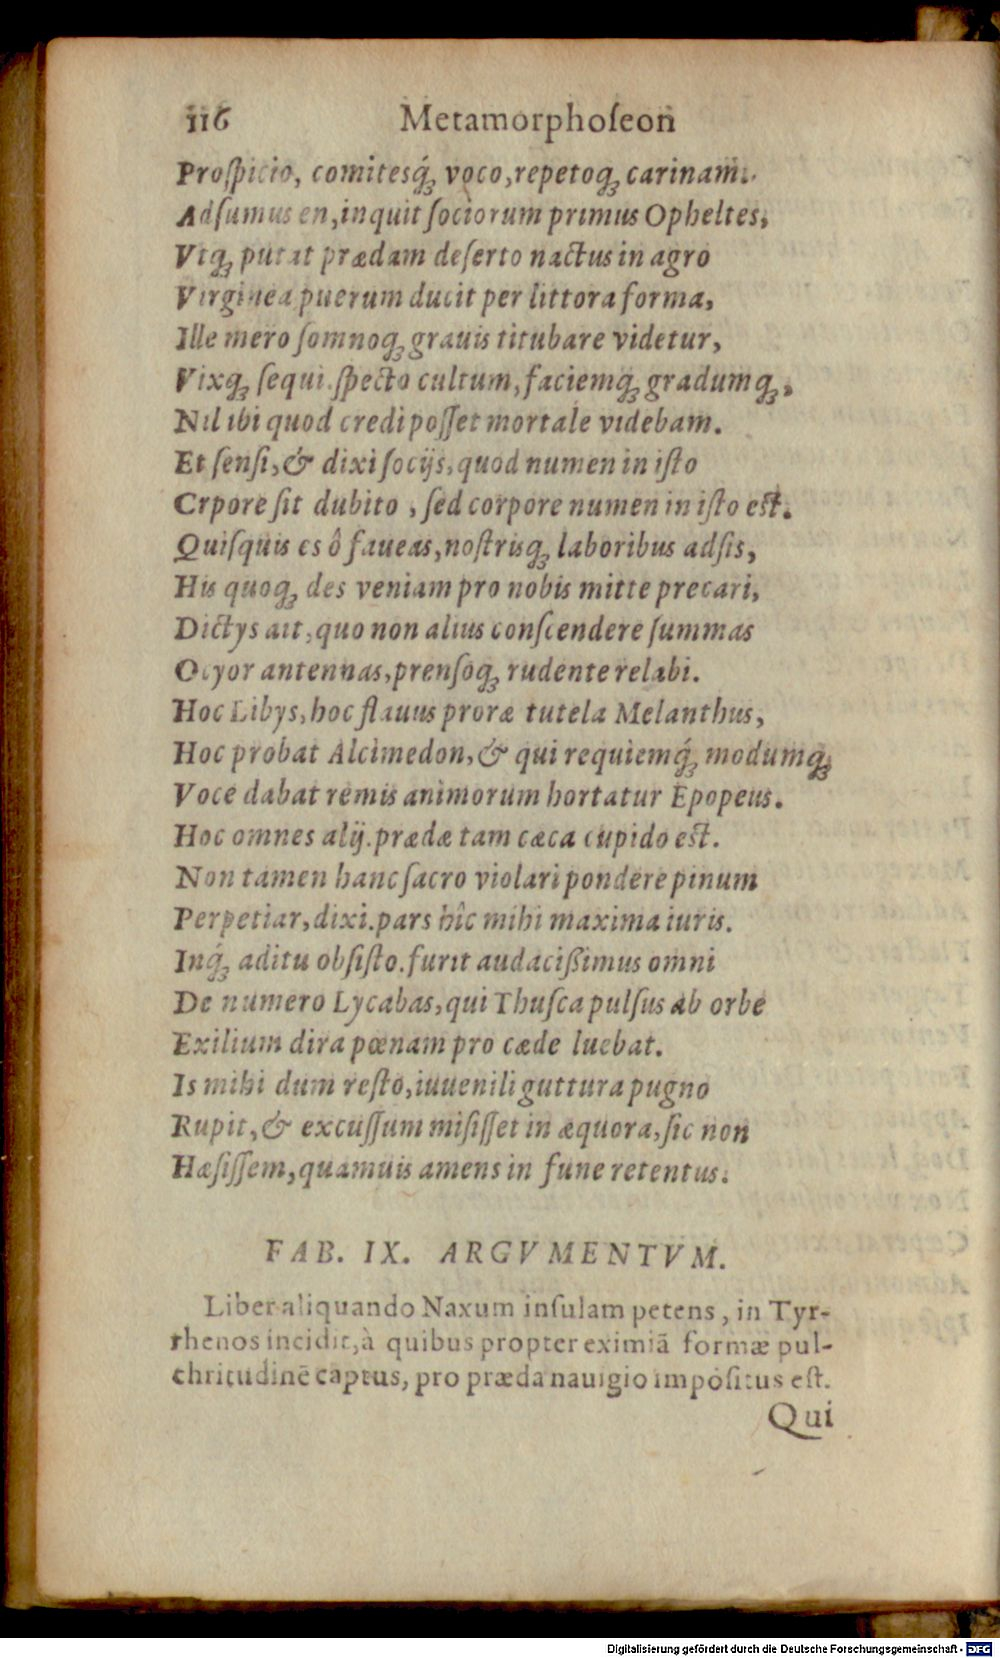 116 Metamorphoſeon
Proſpicio, comitesq́ꝫ voco, repetoqꝫ carinam.
Adſumus en, inquit ſociorum primus Opheltes,
Vtqꝫ putat prædam deſerto nactus in agro
Virginea puerum ducit per littora forma,
Ille mero ſomnoqꝫ grauis titubare videtur,
Vixqꝫ ſequi. ſpecto cultum, faciemqꝫ gradumqꝫ,
Nil ibi quod credi poſſet mortale videbam.
Et ſenſi, & dixi ſocijs, quod numen in iſto
Crpore ſit dubito, ſed corpore numen in iſto eſt.
Quiſquis es ô faueas, noſtrisqꝫ laboribus adſis,
His quoqꝫ des veniam pro nobis mitte precari,
Dictys ait, quo non alius conſcendere ſummas
Ocyor antennas, prenſoqꝫ rudente relabi.
Hoc Libys, hoc flauus proræ tutela Melanthus,
Hoc probat Alcimedon, & qui requiemq́ꝫ modumqꝫ
Voce dabat remis animorum hortatur Epopeus.
Hoc omnes alij. prædæ tam cæca cupido eſt.
Non tamen hanc ſacro violari pondere pinum
Perpetiar, dixi. pars hîc mihi maxima iuris.
Inq́ꝫ aditu obſiſto. furit audacißimus omni
De numero Lycabas, qui Thuſca pulſus ab orbe
Exilium dira pœnam pro cæde luebat.
Is mihi dum reſto, iuuenili guttura pugno
Rupit, & excuſſum miſiſſet in æquora, ſic non
Hæſiſſem, quamuis amens in fune retentus.
FAB. IX. ARGVMENTVM.
Liber aliquando Naxum inſulam petens, in Tyr-
rhenos incidit, à quibus propter eximiā formæ pul-
chritudinē captus, pro præda nauigio impoſitus eſt.
Qui
Digitalisierung gefördert durch die Deutsche Forschungsgemeinschaft - DFG